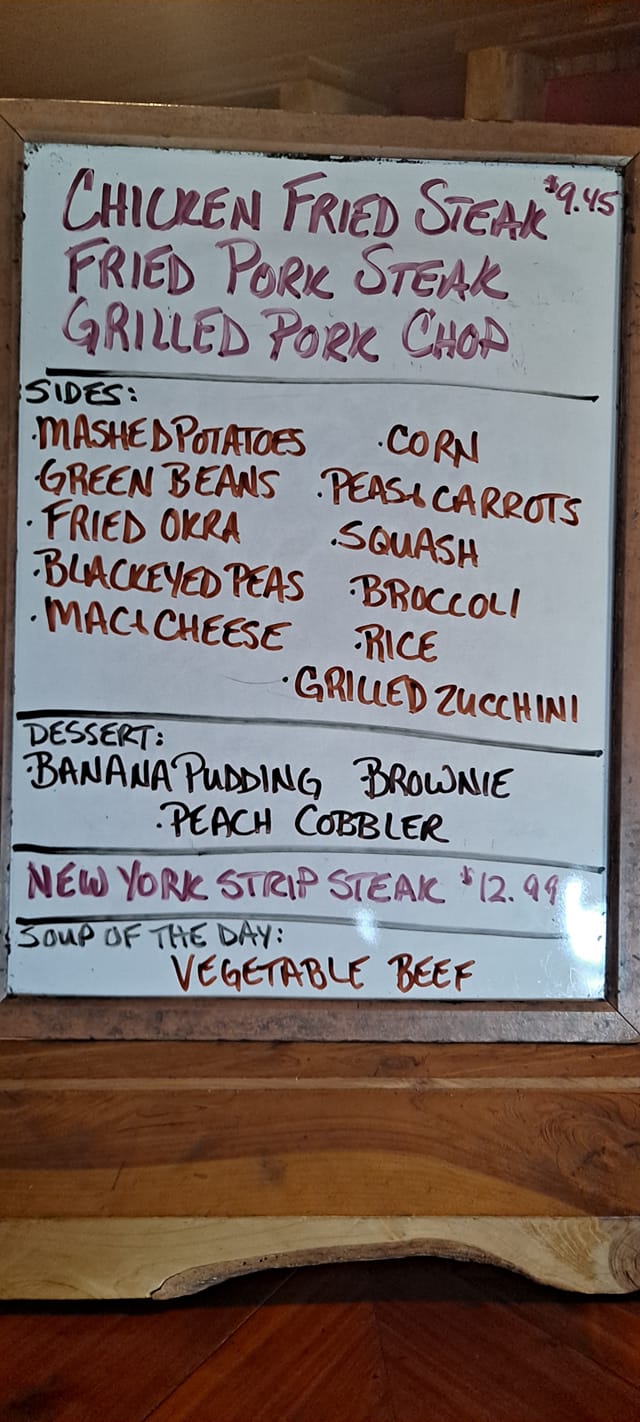 CHICKEN FRIED STEAK $9.45
FRIED PORK STEAK
GRILLED PORK CHOP
SIDES:
·MASHED POTATOES ·CORN
·GREEN BEANS ·PEAS & CARROTS
·FRIED OKRA ·SQUASH
·BLACKEYED PEAS ·BROCCOLI
·MAC & CHEESE ·RICE
·GRILLED ZUCCHINI
DESSERT:
·BANANA PUDDING BROWNIE
·PEACH COBBLER
NEW YORK STRIP STEAK $12.99
SOUP OF THE DAY:
VEGETABLE BEEF